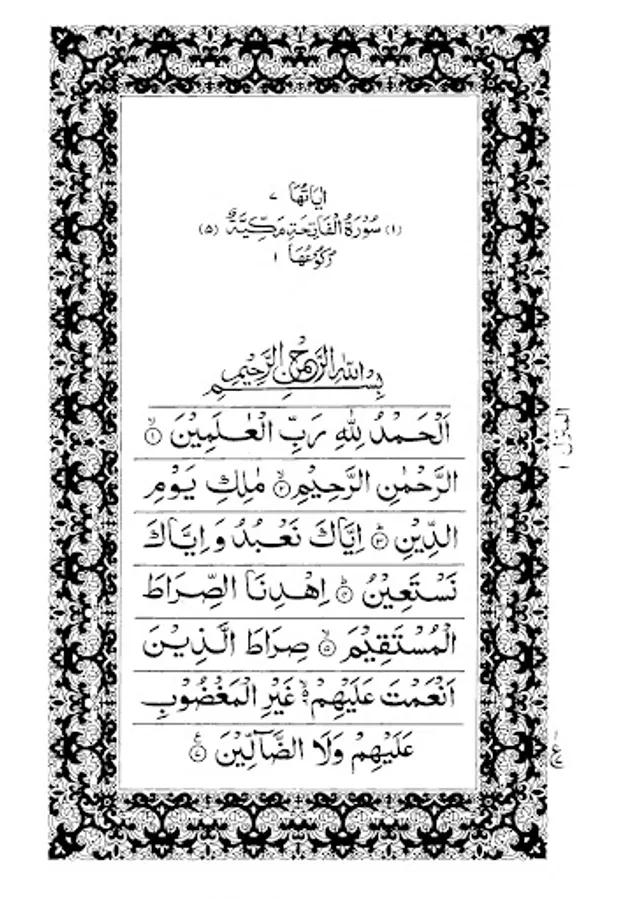 اٰیَاتُهَا ۷
(۱) سُوْرَةُ الْفَاتِحَةِ مَكِّيَّةٌ (۵)
رُكُوْعُهَا ۱
بِسْمِ اللّٰهِ الرَّحْمٰنِ الرَّحِيْمِ
اَلْحَمْدُ لِلّٰهِ رَبِّ الْعٰلَمِيْنَ ۙ﴿۱﴾
الرَّحْمٰنِ الرَّحِيْمِ ۙ﴿۲﴾ مٰلِكِ يَوْمِ
الدِّيْنِ ؕ﴿۳﴾ اِيَّاكَ نَعْبُدُ وَ اِيَّاكَ
نَسْتَعِيْنُ ؕ﴿۴﴾ اِهْدِنَا الصِّرَاطَ
الْمُسْتَقِيْمَ ۙ﴿۵﴾ صِرَاطَ الَّذِيْنَ
اَنْعَمْتَ عَلَيْهِمْ ۙ۬ۦ غَيْرِ الْمَغْضُوْبِ
عَلَيْهِمْ وَلَا الضَّآلِّيْنَ ﴿۷﴾
المنزل ۱
ع